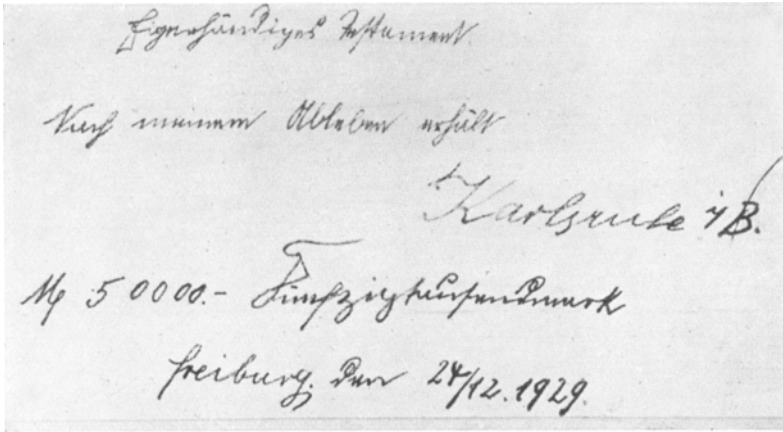 Eigenhändiges Testament.
Nach meinem Ableben erhält
Karlsruhe i/B.
M 50000.- Fünfzigtausendmark
Freiburg, den 24/12.1929.